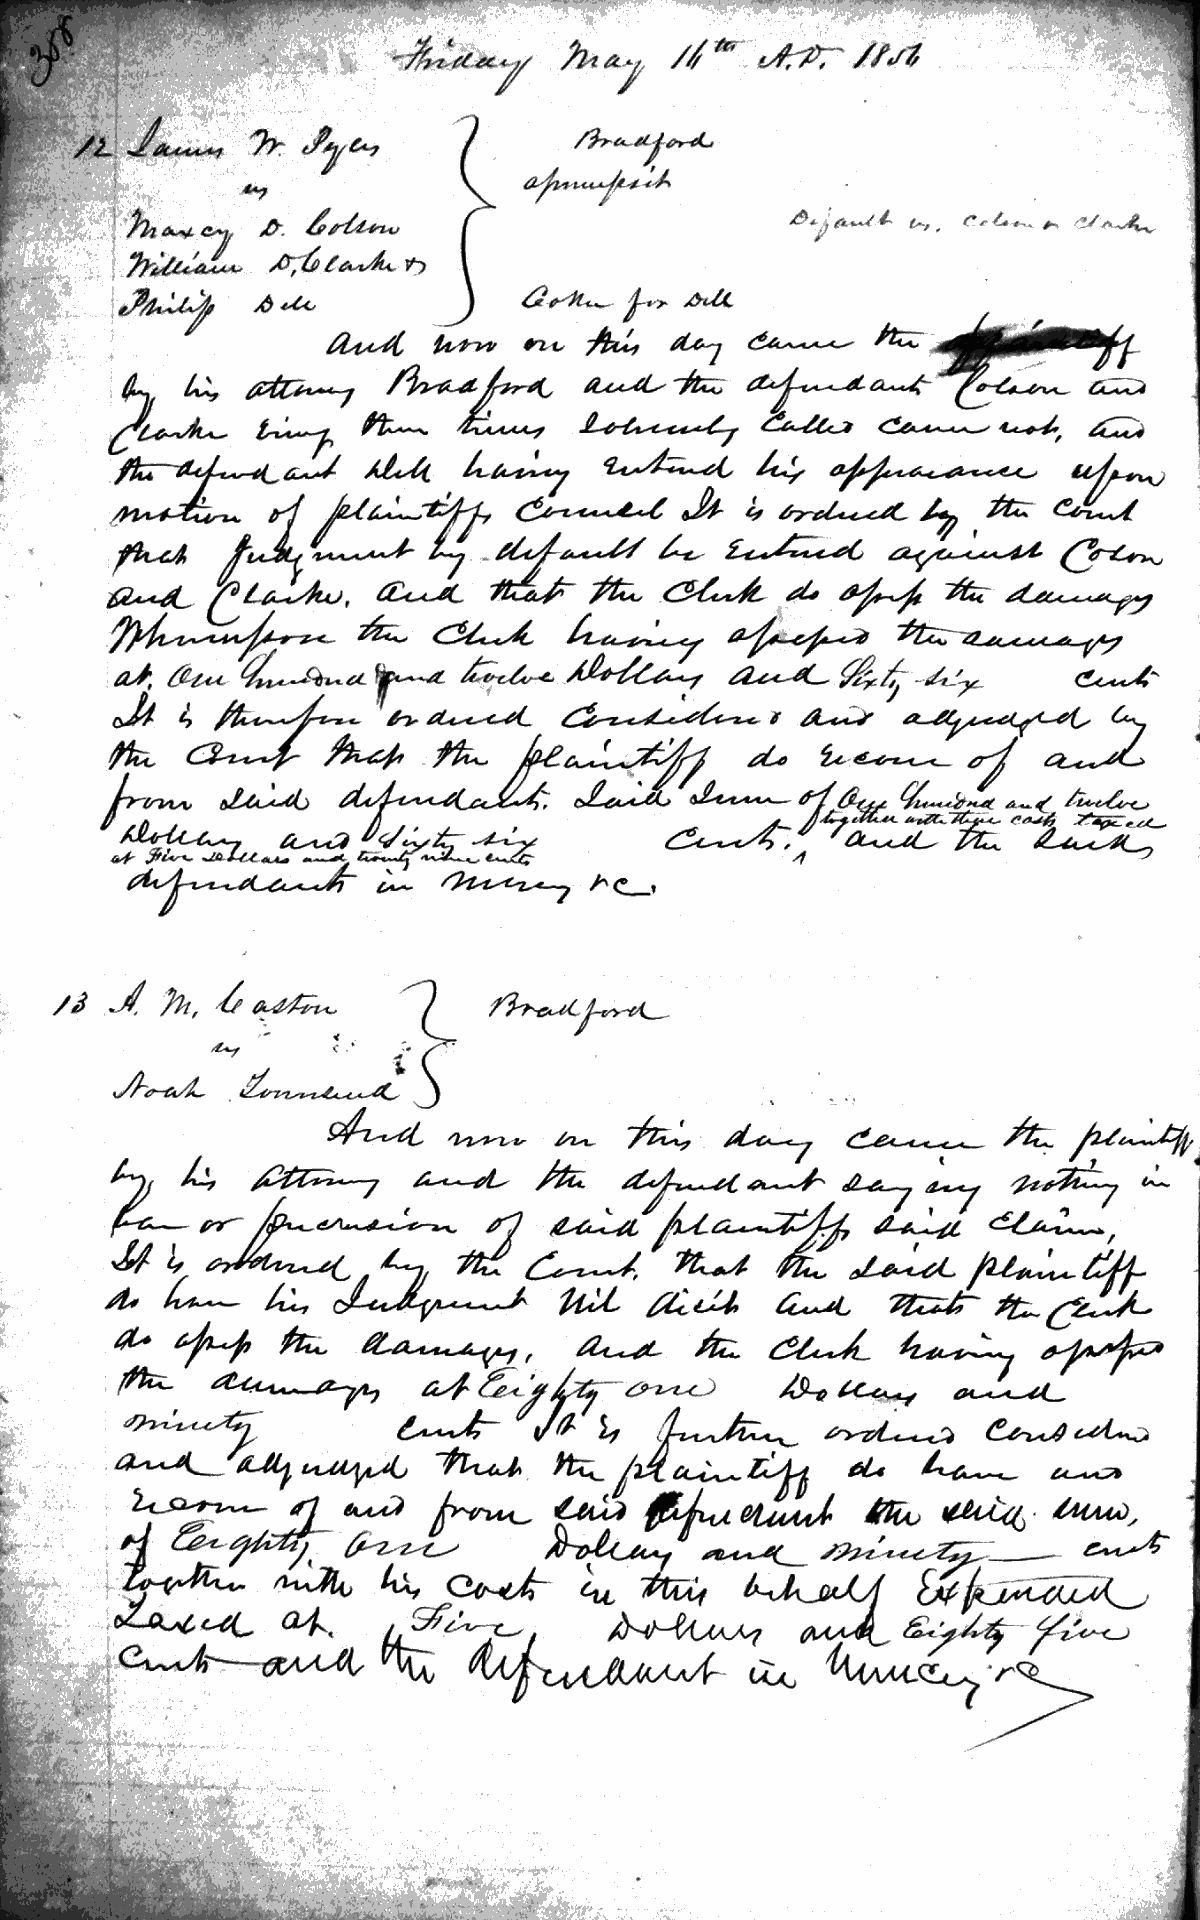 358
Friday May 16th A.D. 1856
12 James W. Pyles Bradford
vs assumpsit
Maxcy D. Colson Default vs. Colson & Clarke
William D. Clarke &
Philip Dell Coker for Dell
And now on this day came the plaintiff
by his attorney Bradford and the defendants Colson and
Clarke being three times solemnly called came not, and
the defendant Dell having entered his appearance upon
motion of plaintiffs Counsel It is ordered by the Court
that Judgment by default be entered against Colson
and Clarke. And that the Clerk do assess the damages
Whereupon the Clerk having assessed the damages
at. One hundred and twelve Dollars and Sixty six cents
It is therefore ordered Considered and adjudged by
the Court that the plaintiff do recover of and
from said defendants. Said Sum of One hundred and twelve
Dollars and Sixty six cents. ^ together with there costs taxed
at Five Dollars and twenty nine cents and the said
defendants in mercy &c.
13 A. M. Caston Bradford
vs
Noah Townsend
And now on this day came the plaintiff
by his attorney and the defendant saying nothing in
bar or preclusion of said plaintiffs said claim,
It is ordered by the Court. that the said plaintiff
do have his Judgment Nil dicit and that the Clerk
do assess the damages, and the Clerk having assessed
the damages at Eighty one Dollars and
ninety cents It is further ordered considered
and adjudged that the plaintiff do have and
recover of and from said defendant the said sum,
of Eighty one Dollars and ninety — cents
together with his costs in this behalf Expended
Taxed at. Five Dollars and Eighty five
cents and the defendant in mercy &c